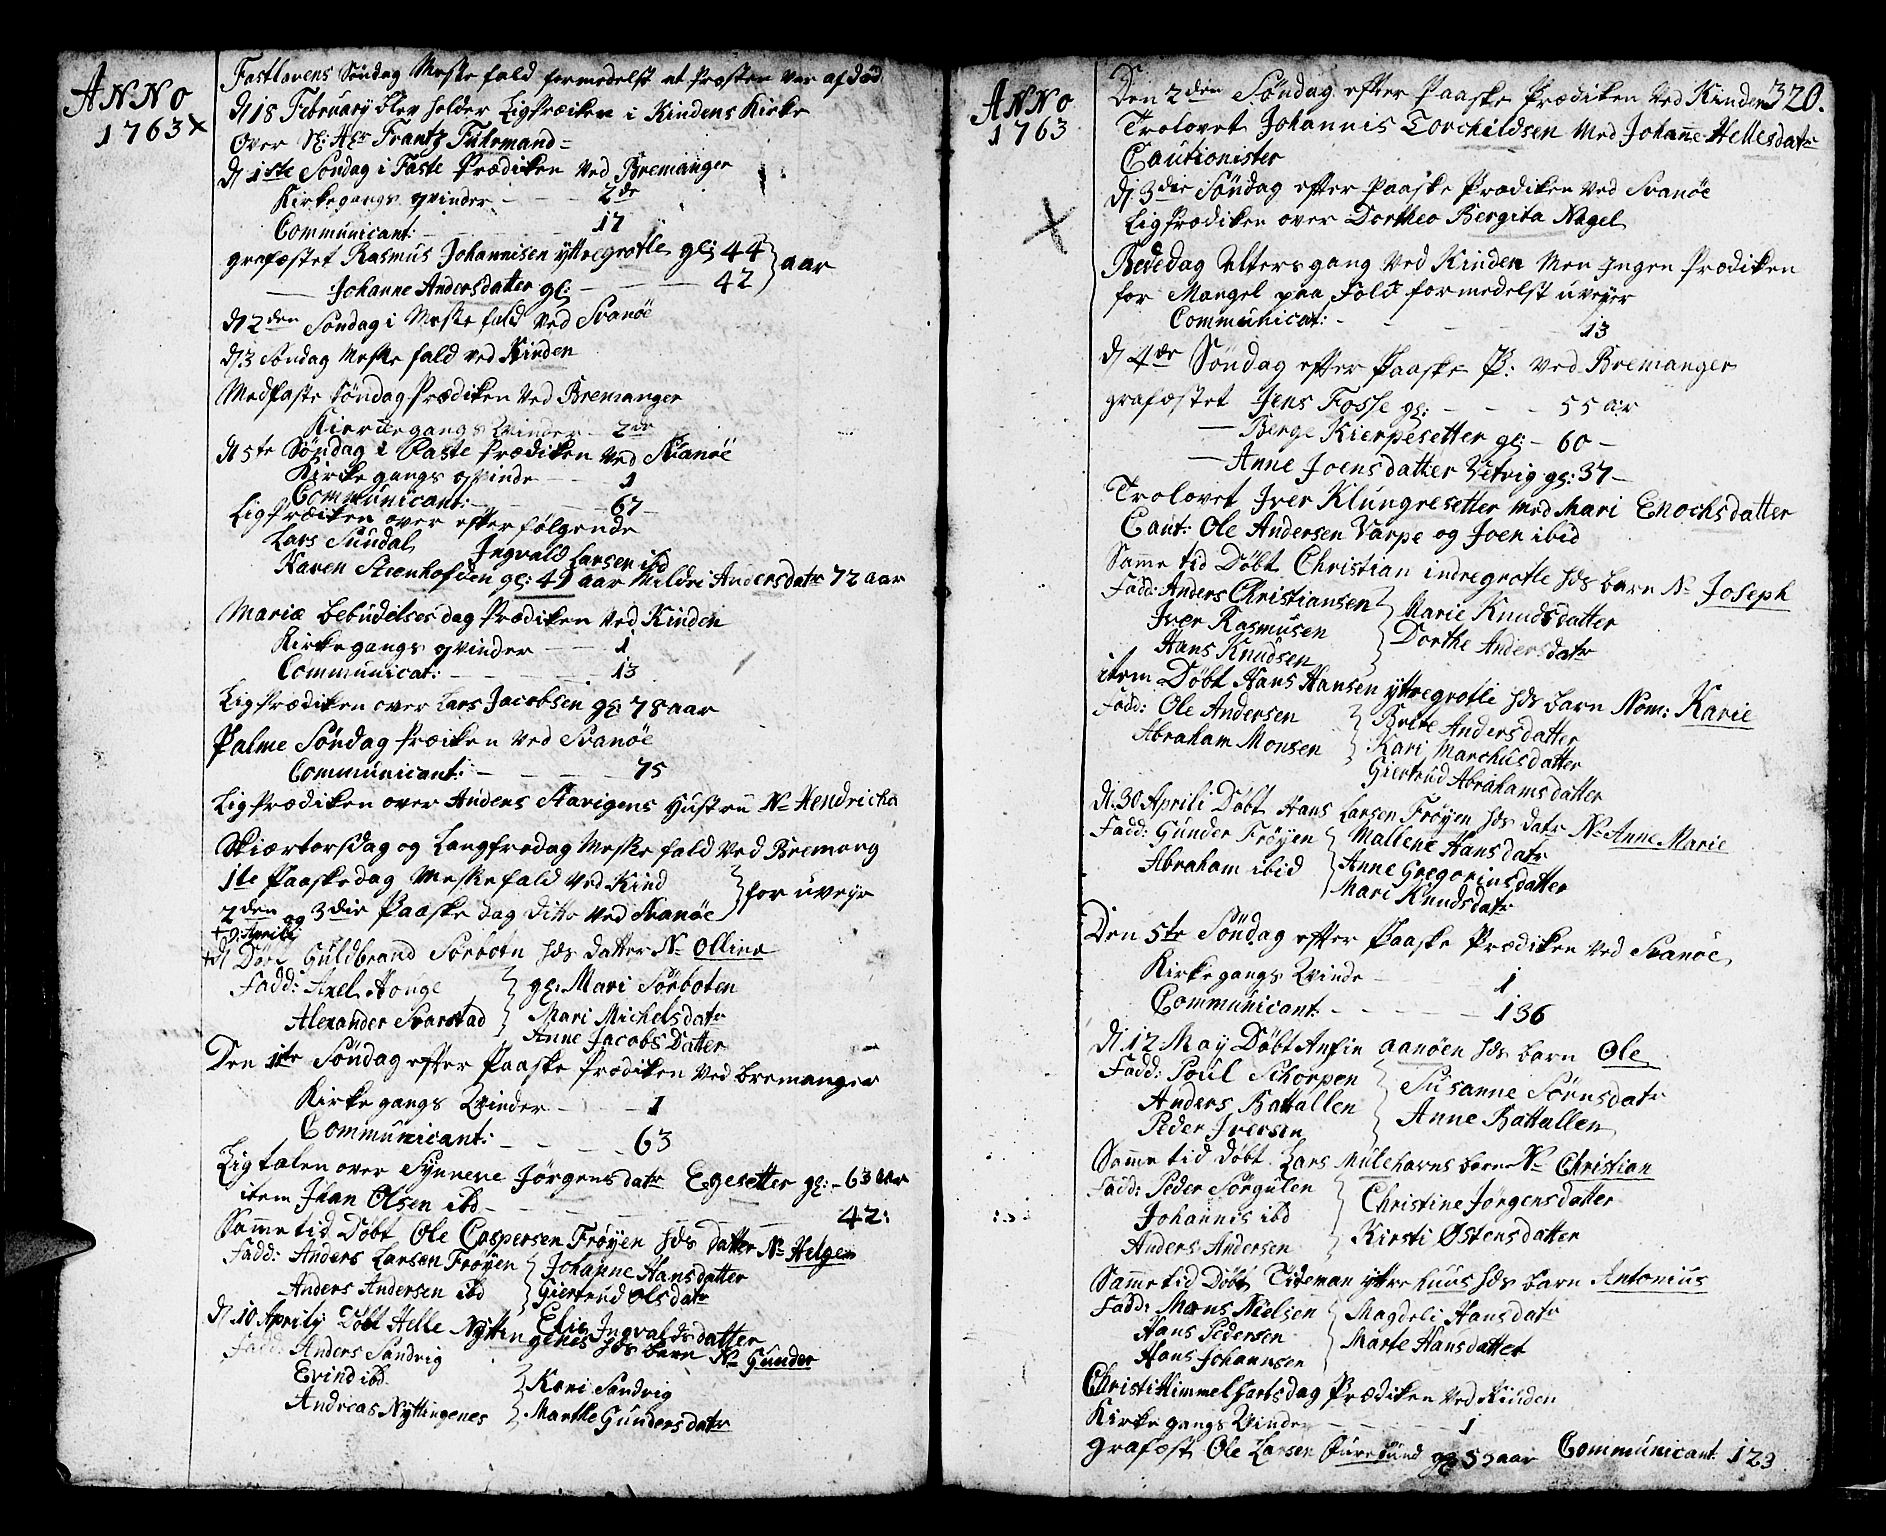 ANNO
1763 X
Fastlavens Søndag Meske fald formedelst at Præsten var afdød
d 18 February blev holden Ligpræken i Kindens Kirke
Over Sl: Hr Frantz Fuhrmand =
d 1ste Søndag i Faste Prædiken ved Bremanger
Kirkegangs qvinder - - 2de
Communicant: - - 17
grafæstet Rasmus Johannisen yttregrotle gl: 44 } aar
— Johanne Andersdatter gl: - - - 42
d 2den Søndag i Meske fald ved Svanøe
d 3 Søndag Meske fald ved Kinden
Medfaste Søndag Prædiken ved Bremanger
Kierkegangs Qvinder - 2de
d 5te Søndag i Faste Prædiken ved Svanøe
Kirke gangs qvinde - - 1
Communicant: - - 67
Ligpræiken over efterfølgende
Lars Sundal Ingvald Larsen ibd
Karen Steenhofden gl: 49 aar Mildri Andersdatr 72 aar
Mariæ bebudelses dag Prædiken ved Kinden
Kirke gangs qvinder - - 1
Communicat: - - 13
Ligprædiken over Lars Jacobsen gl: 78 aar
Palme Søndag Præiken ved Svanøe
Communicant: - - - 75
Ligprædiken over Anders Stavigens Hustru N: Hendricha
Skiærtorsdag og Langfredag Meske fald ved Bremang
1te Paaskedag Meskefald ved Kind } for uveyr
2den og 3die Paaske dag ditto ved Svanøe
+ 9: Aprili
+ d Døbt Guldbrand Sørbotn hds datter N: Ollina
Fadd: Axel Houge } gl: Mari Sørboten
Alexander Svarstad } Mari Michelsdatr
Anne Jacobs Datter
Den 1te Søndag efter Paaske Prædiken ved bremanger
Kirke gangs Qvinder - - 1
Communicant: - - - 63
Ligtalen over Synneve Jørgensdatr Egesetter gl: - 63 aar
item Jhan Olsen ibd - - - - 42:
Samme tid Døbt Ole Caspersen Frøyen hds datter N: Helgen
Fadd: Anders Larsen Frøyen } Johanne Hansdatter
Anders Andersen ibd } Giertrud Olsdatr
Elie Ingvaldsdatter
d 10 Aprily Døbt Helle Nyttingenes hds barn N: Gunder
Fadd: Anders Sandvig
Evind ibd } Kari Sandvig
Andreas Nyttingenes } Marthe Gundersdatr
ANNO
1763
X
320.
Den 2den Søndag efter Paaske Prædiken ved Kinden
Trolovet Johannis Torchildsen med Johanne Hellesdatr
Cautionister
d: 3die Søndag efter Paaske Prædiken ved Svanøe
Ligprædiken over Dorthea Bergita Nagel
Bededag Altersgang ved Kinden Men Ingen Prædiken
for Mangel paa Folk formedelst uveyer
Communicat: - - - - 13
d 4de Søndag efter Paaske P: ved Bremanger
grafæstet Jens Fosse gl: - - - 55 aar
— Berge Kierpesetter gl: - 60 -
— Anne Joensdatter Vetvig gl: 37 -
Trolovet Iver Klungresetter med Mari Enochsdatter
Caut: Ole Andersen Varpe og Joen ibid
Samme tid Døbt Christian indregrotle hds barn N: Joseph
Fadd: Anders Christiansen } Marie Knudsdatter
Iver Rasmusen } Dorthe Andersdatr
Hans Knudsen
item Døbt Hans Hansen yttregrotle hds barn Nom: Karie
Fadd: Ole Andersen } Brite Andersdatter
Abraham Monsen } Kari Marchusdatter
Giertrud Abrahamsdatter
d: 30 Aprili Døbt Hans Larsen Frøyen hds datr N: Anne Marie
Fadd: Gunder Frøyen } Mallene Hansdatr
Abraham ibid } Anne Gregoriusdatter
Mari Knudsdatr
Den 5te Søndag efter Paaske Prædiken ved Svanøe
Kirkegangs Qvinde - - - 1
Communicant - - - - 136
d: 12 May Døbt Anfin aanøen hds barn Ole
Fadd: Poul Schorpen } Susanne Sørnsdatr
Anders Battallen } Anne Battallen
Peder Iversen
Samme tid døbt Lars Mulehavns barn N: Christian
Fadd: Peder Sørgulen } Christine Jørgensdatter
Johannis ibd
Anders Andersen } Kirsti Østensdatter
Samme tid Døbt Tideman yttrehuus hds barn Antonius
Fadd: Mons Nielsen } Magdeli Hansdatr
Hans Pedersen
Hans Johannsen } Marte Hansdatter
Christi Himmelfartsdag Prædiken ved Kinden
Kirke gangs Qvinder - - - - 1
grafæst Ole Larsen gl: 55 aar Communicant: 123